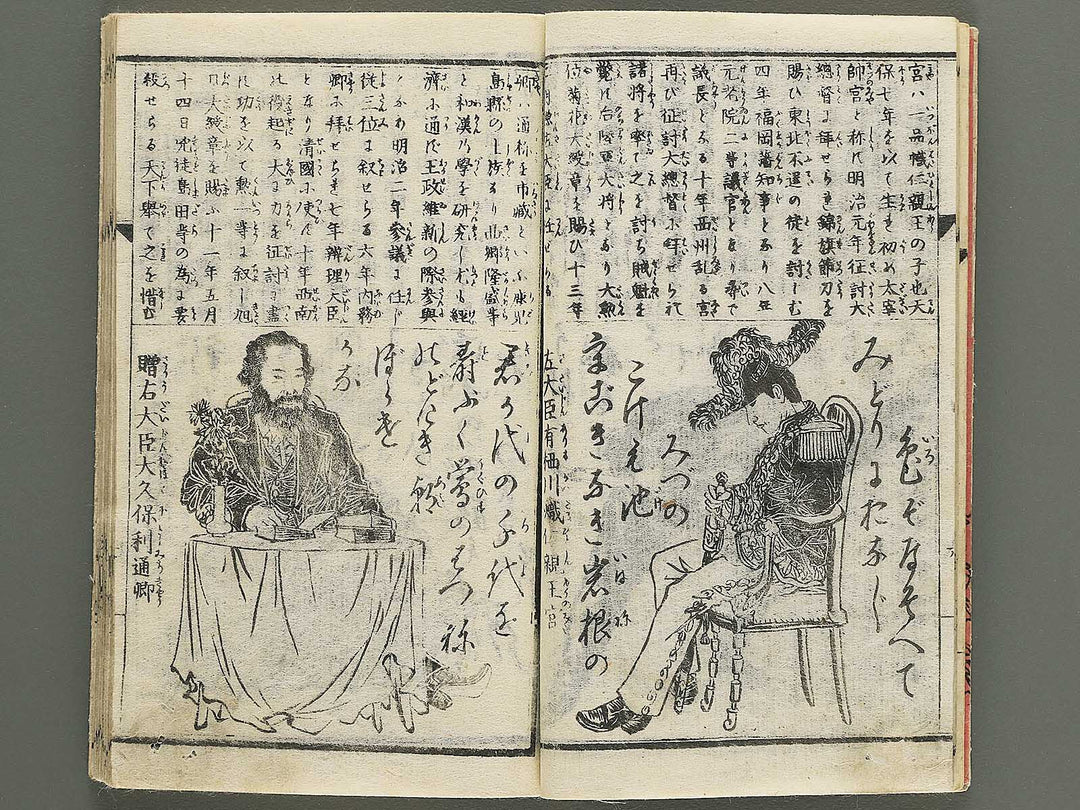 宮ハ一品幟仁親王の子也天
保七年を以て生る初め太宰
帥宮と称に明治元年征討大
總督に拜せらる錦旗節刀を
賜ひ東北不逞の徒を討しむ
四年福岡藩知事となり八年
元老院二等議官となり尋で
議長となる十年西州乱る宮
再び征討大總督に拜せられ
諸将を率て之を討ち賊魁を
斃に後陸軍大将となり大勲
位菊花大綬章を賜ひ十三年
左大臣に任せらる
みどりにおなじ
亀ぞなそへて
みづの
こけむ池
うごきなき岩根の
左大臣有栖川熾仁親王宮
卿ハ通称を市藏といふ鹿児
島縣の士族なり西郷隆盛等
と和漢の學を研究し尤も經
濟に通に王政維新の際参與
となり明治二年参議に任じ
從三位に叙せらる六年内務
卿に拜せらる七年辨理大臣
となり清國に使に十年西南
の役起る大に力を征討に盡
に功を以て勲一等に叙し旭
日大綬章を賜ふ十一年五月
十四日兇徒島田等の為に要
殺せらる天下舉て之を惜む
君が代の千代を
壽ぶく鶯のはつ称
のどけき朝
ぼらけ
かな
贈右大臣大久保利通卿